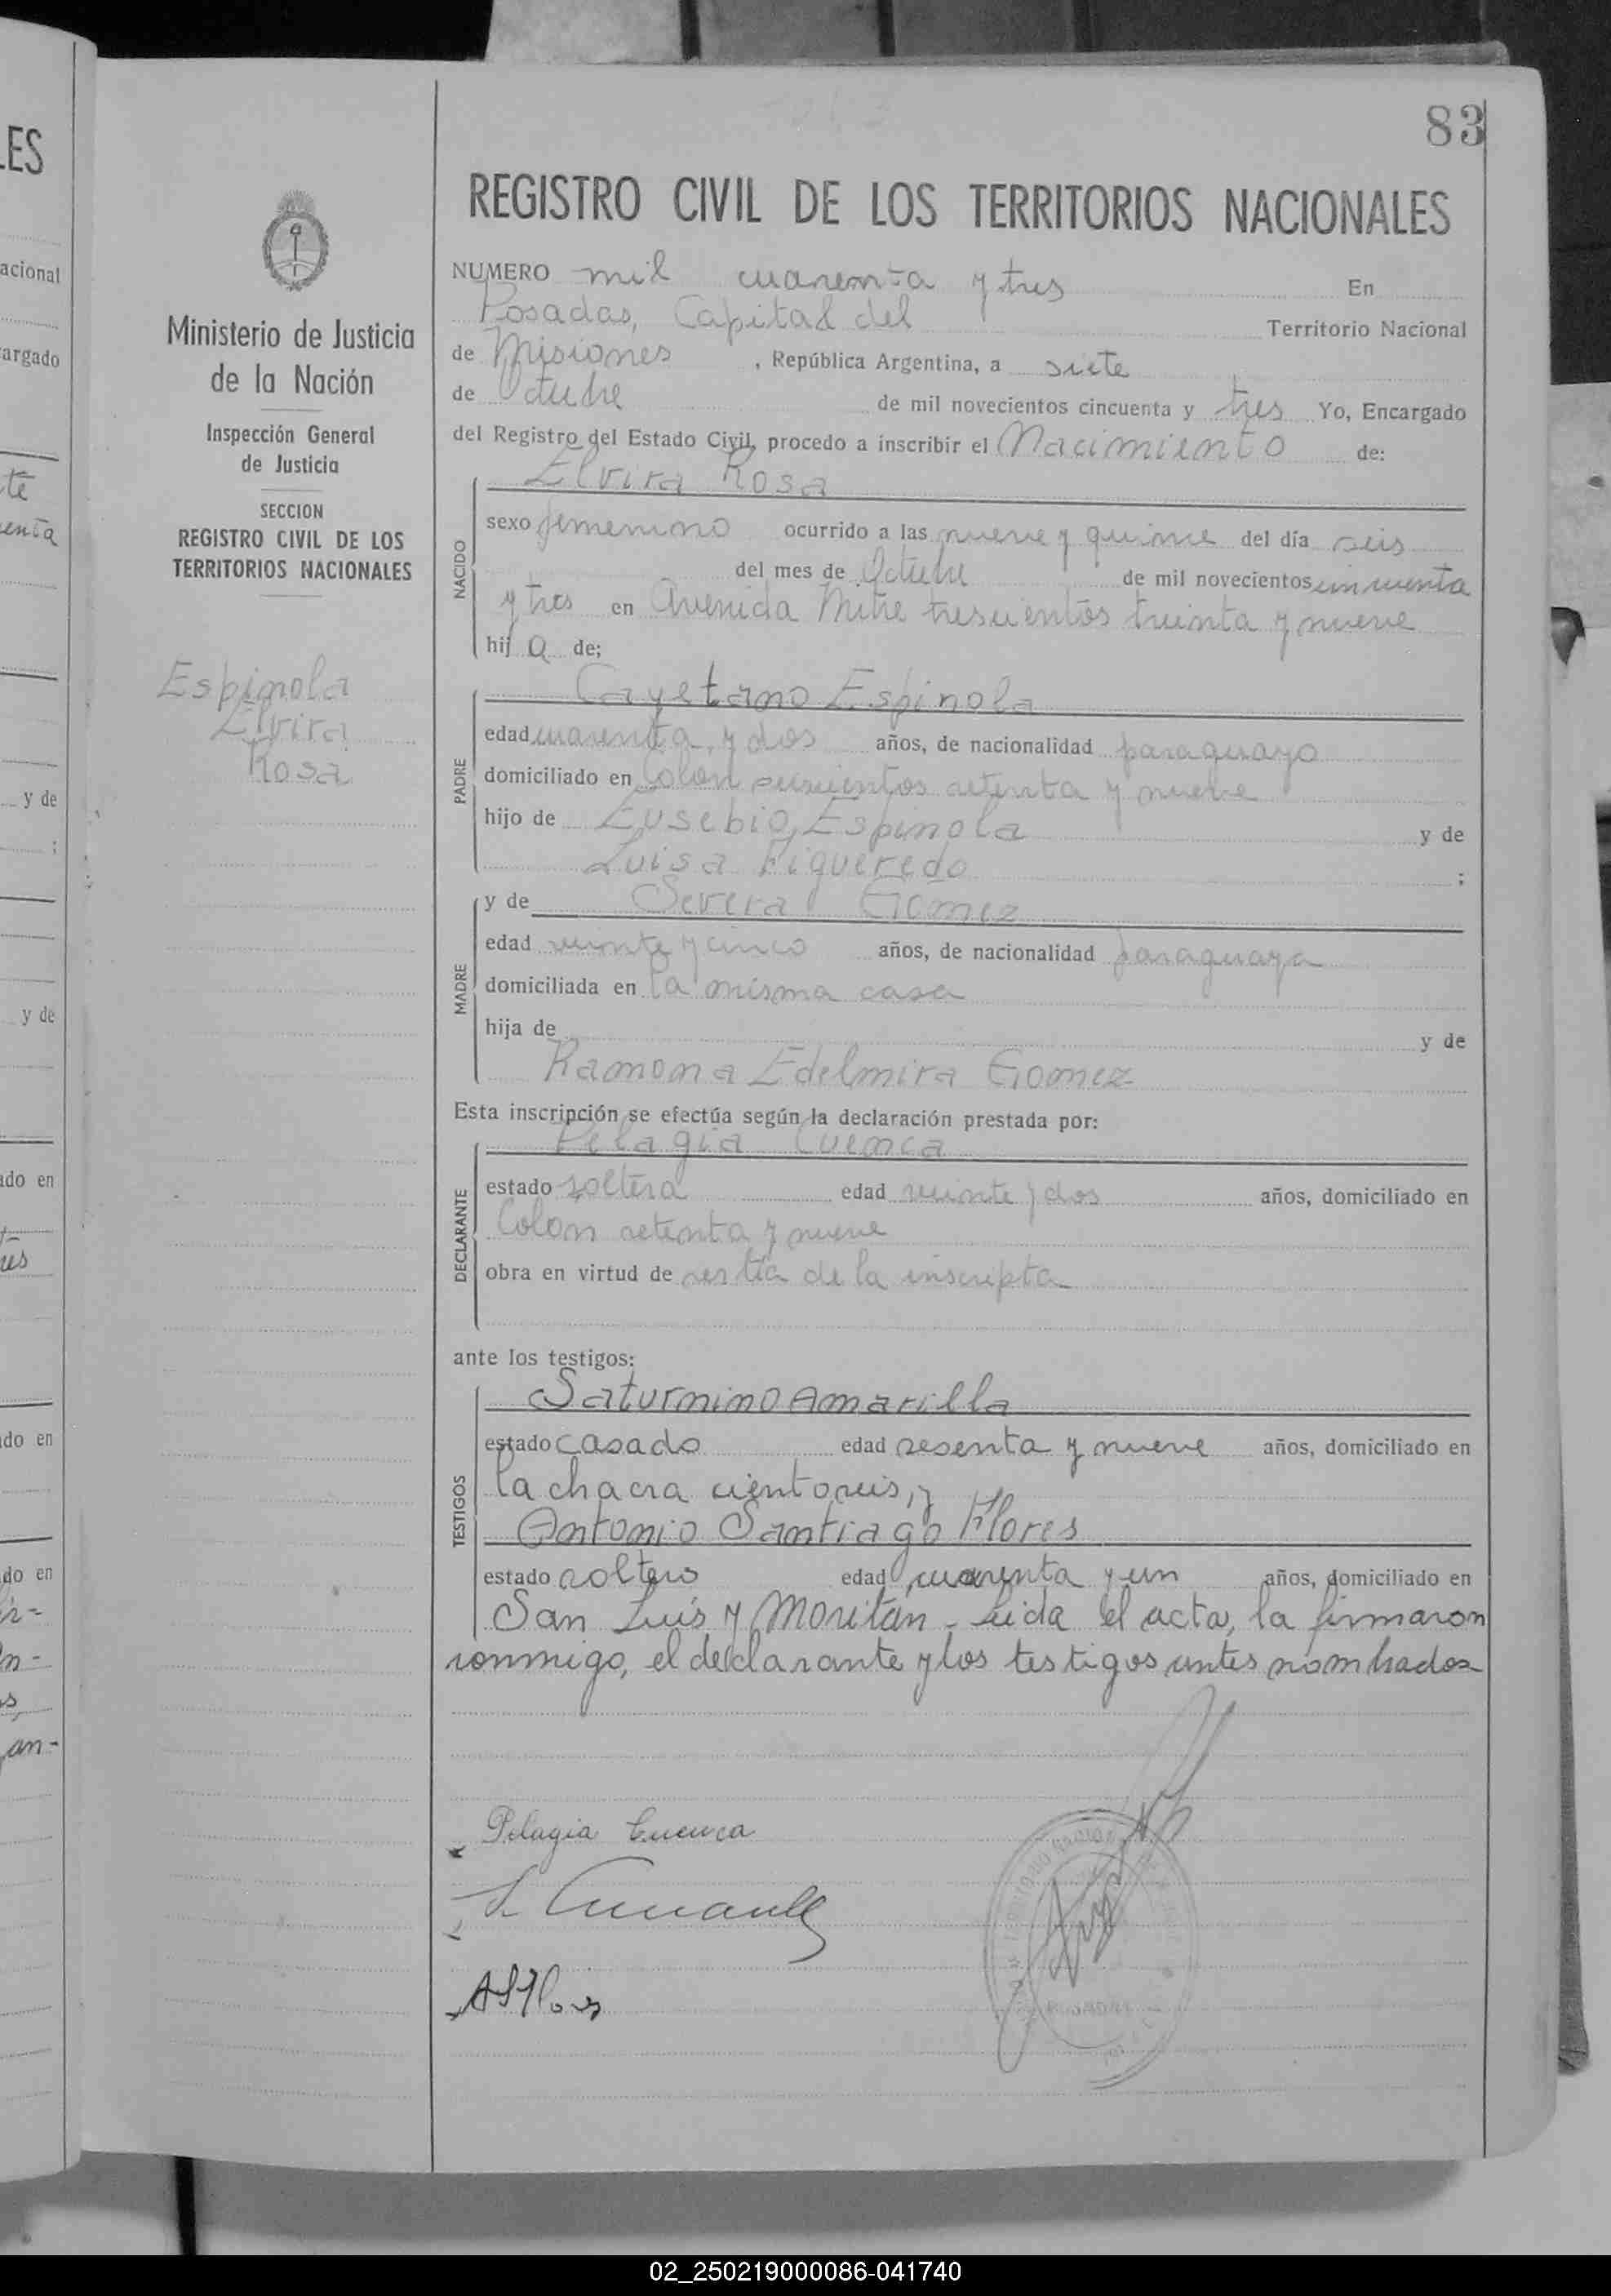 83
REGISTRO CIVIL DE LOS TERRITORIOS NACIONALES
Ministerio de Justicia
de la Nación
Inspección General
de Justicia
SECCION
REGISTRO CIVIL DE LOS
TERRITORIOS NACIONALES
Espinola
Elvira
Rosa
NUMERO mil cuarenta y tres En
Posadas, Capital del Territorio Nacional
de Misiones, República Argentina, a siete
de Octubre de mil novecientos cincuenta y tres Yo, Encargado
del Registro del Estado Civil, procedo a inscribir el Nacimiento de:
Elvira Rosa
NACIDO
sexo femenino ocurrido a las nueve y quince del día seis
del mes de Octubre de mil novecientos cincuenta
y tres en Avenida Mitre trescientos treinta y nueve
hij a de;
Cayetano Espinola
PADRE
edad cuarenta y dos años, de nacionalidad paraguayo
domiciliado en Colon setenta y nueve
hijo de Eusebio Espinola y de
Luisa Figueredo ;
y de Severa Gomez
MADRE
edad veinte y cinco años, de nacionalidad paraguaya
domiciliada en la misma casa
hija de y de
Ramona Edelmira Gomez
Esta inscripción se efectúa según la declaración prestada por:
Pelagia Cuenca
DECLARANTE
estado soltera edad veinte y dos años, domiciliado en
Colon setenta y nueve
obra en virtud de ser tía de la inscripta
ante los testigos:
Saturnino Amarilla
TESTIGOS
estado casado edad sesenta y nueve años, domiciliado en
la chacra ciento seis, y
Antonio Santiago Flores
estado soltero edad cuarenta y un años, domiciliado en
San Luis y Moritán - Leida el acta, la firmaron
conmigo, el declarante y los testigos antes nombrados
Pelagia Cuenca
ASFlores
02_250219000086-041740